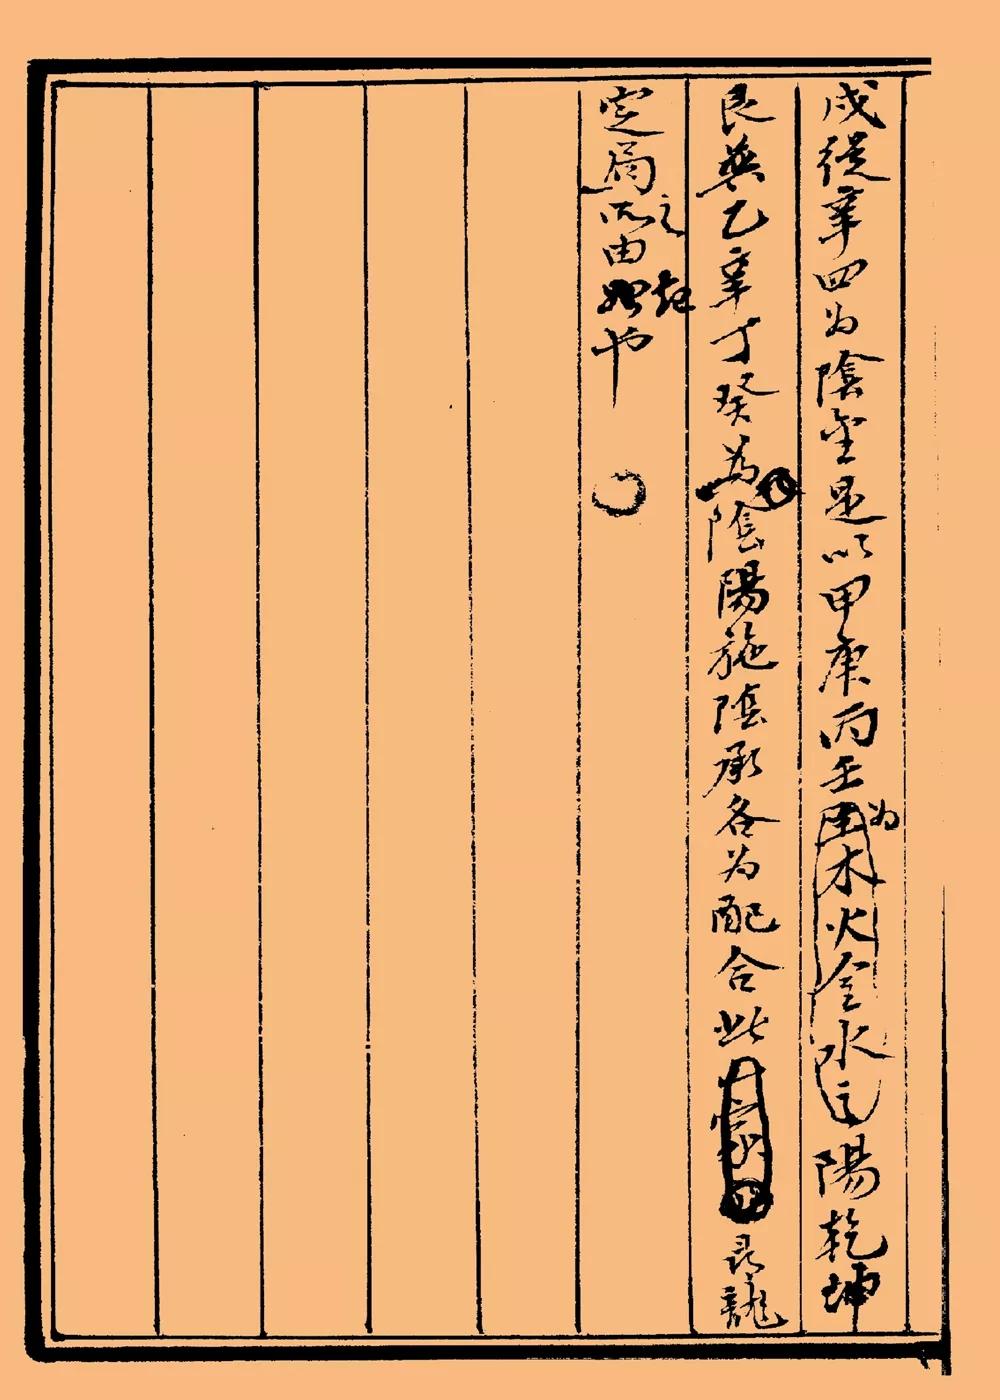 成從辛四为陰金是以甲庚丙壬为木火金水之陽乾坤
艮巽乙辛丁癸為陰陽施陰承各为配合此尋龍
定局之所由起也